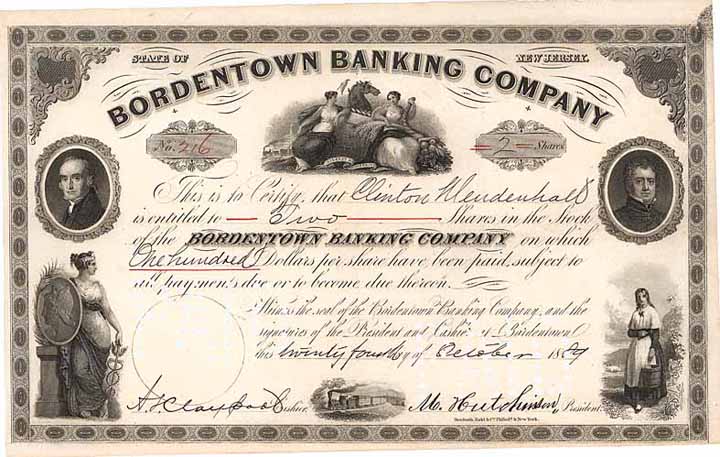 STATE OF NEW JERSEY.
BORDENTOWN BANKING COMPANY
No. 216 — 2 — Shares
This is to Certify, that Clinton Mendenhall
is entitled to — Two — Shares in the Stock
of the BORDENTOWN BANKING COMPANY on which
One hundred Dollars per share have been paid, subject to
all payments due or to become due thereon.
Witness the seal of the Bordentown Banking Company, and the
signatures of the President and Cashier at Bordentown
this twenty fourth day of October 1889
Cashier. M. Hutchinson, President.